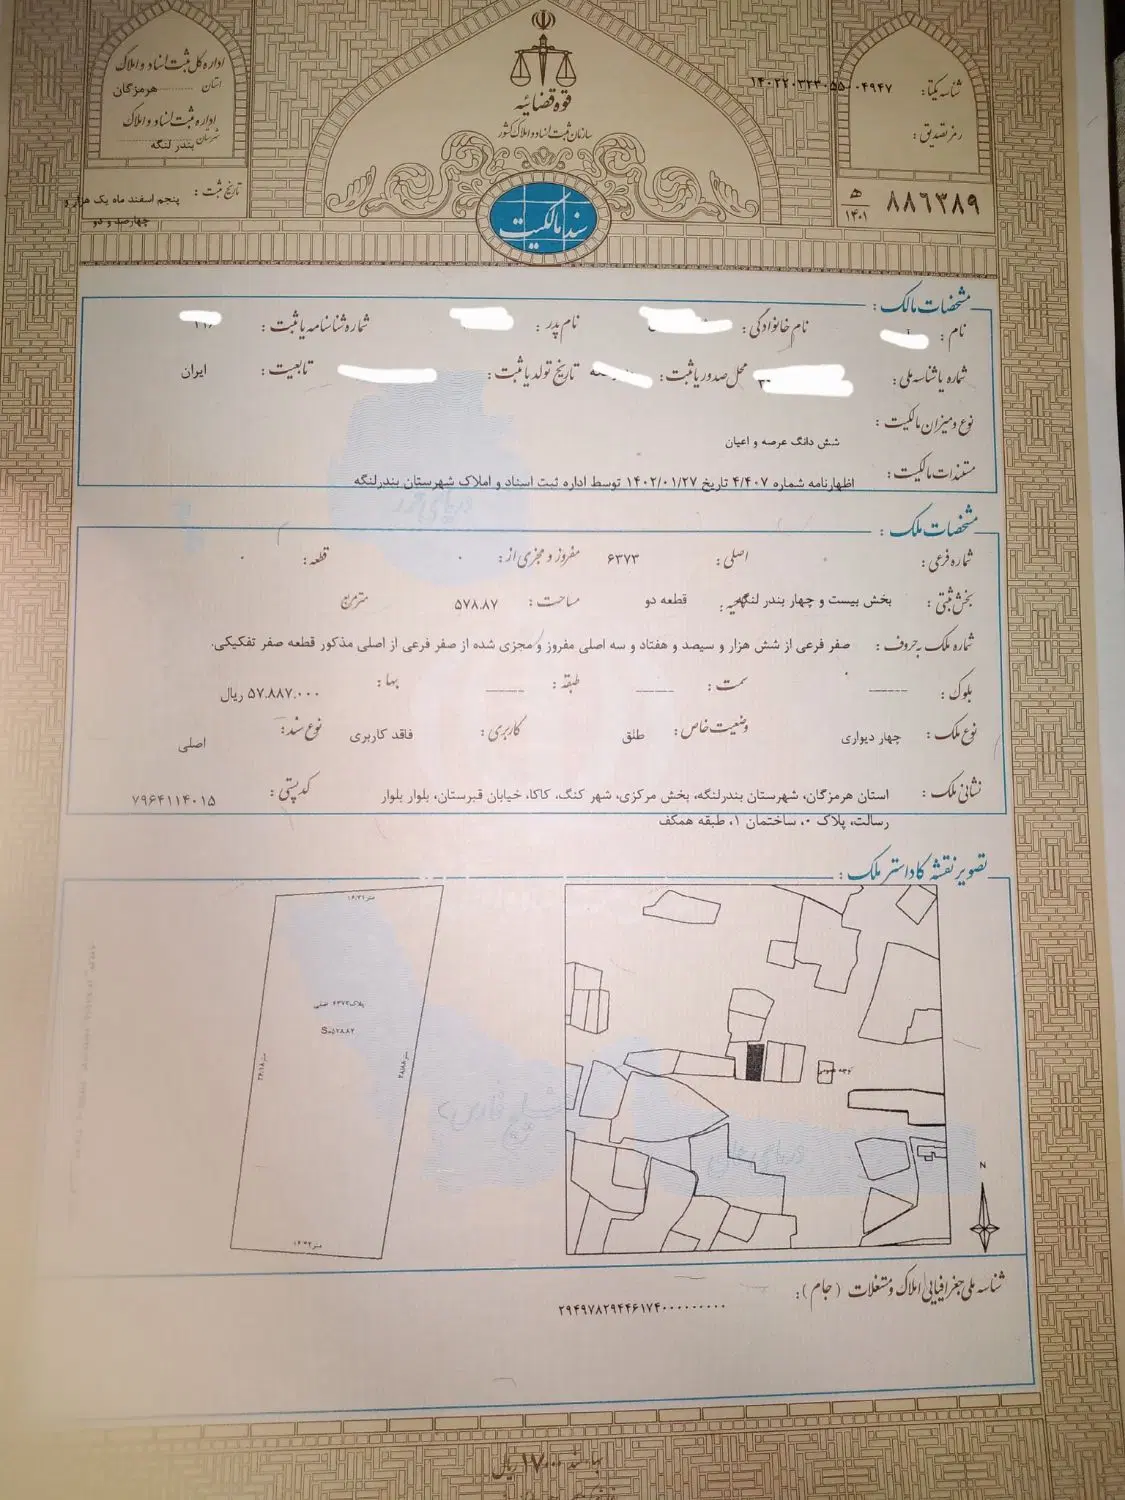 اداره کل ثبت اسناد و املاک
استان هرمزگان
اداره ثبت اسناد و املاک
شهرستان بندر لنگه
تاریخ ثبت : پنجم اسفند ماه یک هزار و
چهارصد و دو
قوه قضائیه
سازمان ثبت اسناد و املاک کشور
سند مالکیت
شناسه یکتا :
رمز تصدیق :
۸۸۶۳۸۹ ه‍ ۱۴۰۱
مشخصات مالک :
نام : نام خانوادگی : نام پدر : شماره شناسنامه یا ثبت :
شماره یا شناسه ملی : محل صدور یا ثبت : تاریخ تولد یا ثبت : تابعیت : ایران
نوع و میزان مالکیت :
شش دانگ عرصه و اعیان
مستندات مالکیت :
اظهارنامه شماره ۴/۴۰۷ تاریخ ۱۴۰۲/۰۱/۲۷ توسط اداره ثبت اسناد و املاک شهرستان بندرلنگه
دریای خزر
مشخصات ملک :
شماره فرعی : ۰ اصلی : ۶۳۷۳ مفروز و مجزی از : ۰ قطعه : ۰
بخش ثبتی : بخش بیست و چهار بندر لنگه ناحیه : قطعه دو مساحت : ۵۷۸.۸۷ متر مربع
شماره ملک به حروف : صفر فرعی از شش هزار و سیصد و هفتاد و سه اصلی مفروز و مجزی شده از صفر فرعی از اصلی مذکور قطعه صفر تفکیکی.
بلوک : ------ سمت : ------ طبقه : ------ بها : ۵۷.۸۸۷.۰۰۰ ریال
نوع ملک : چهار دیواری وضعیت خاص : طلق کاربری : فاقد کاربری نوع سند : اصلی
نشانی ملک : استان هرمزگان، شهرستان بندرلنگه، بخش مرکزی، شهر کنگ، کاکا، خیابان قبرستان، بلوار بلوار
رسالت، پلاک ۰، ساختمان ۱، طبقه همکف
کد پستی : ۷۹۶۴۱۱۴۰۱۵
تصویر نقشه کاداستر ملک :
پلاک ۶۳۷۳ اصلی
خلیج فارس
دریای عمان
N
شناسه ملی جغرافیایی املاک و مستغلات (جام) :
۲۹۴۹۷۸۲۹۴۴۶۱۷۴۰۰۰۰۰۰۰۰۰